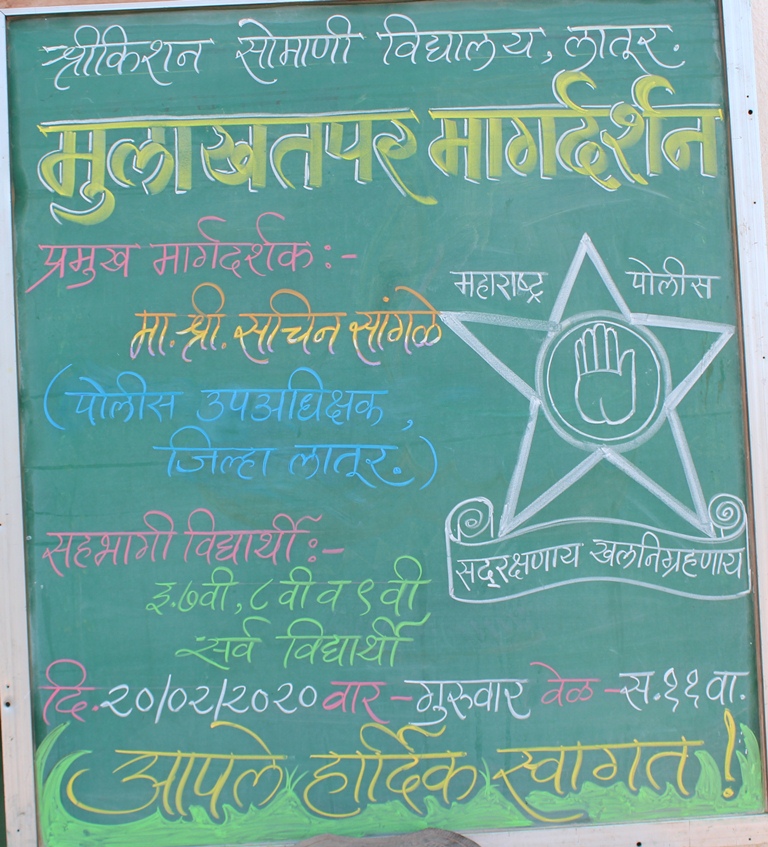 श्रीकिशन सोमाणी विद्यालय, लातूर.
मुलाखतपर मार्गदर्शन
प्रमुख मार्गदर्शक :-
मा. श्री. सचिन सांगळे
(पोलीस उपअधिक्षक,
जिल्हा लातूर.)
महाराष्ट्र पोलीस
सद्‌रक्षणाय खलनिग्रहणाय
सहभागी विद्यार्थी :-
इ. ७वी, ८ वी व ९ वी
सर्व विद्यार्थी
दि. २०/०२/२०२० वार - गुरुवार वेळ - स. ११ वा.
आपले हार्दिक स्वागत !